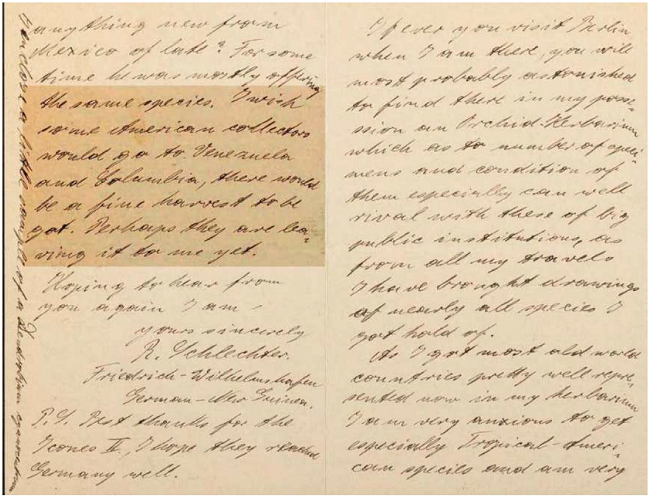 anything new from
Mexico of late? For some
time he was mostly offering
the same species. I wish
some American collectors
would go to Venezuela
and Columbia, there would
be a fine harvest to be
got. Perhaps they are lea-
ving it to me yet.
Hoping to hear from
you again I am
yours sincerely
R. Schlechter.
Friedrich-Wilhelmshafen
German-New Guinea.
P.S. Best thanks for the
Icones II, I hope they reached
Germany well.
I enclose a better sample of a Dendrobium
If ever you visit Berlin
when I am there, you will
most probably astonished
to find there in my posses-
sion an Orchid-Herbarium
which as to number of speci-
mens and condition of
them especially can well
rival with these of big
public institutions, as
from all my travels
I have brought drawings
of nearly all species I
got hold of.
As I got most old world
countries pretty well repre-
sented now in my herbarium
I am very anxious to get
especially Tropical-Ameri-
can species and am very